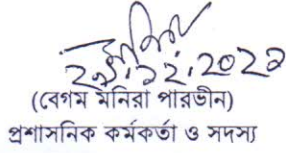 ২৯.১২.২০২২
(বেগম মনিরা পারভীন)
প্রশাসনিক কর্মকর্তা ও সদস্য